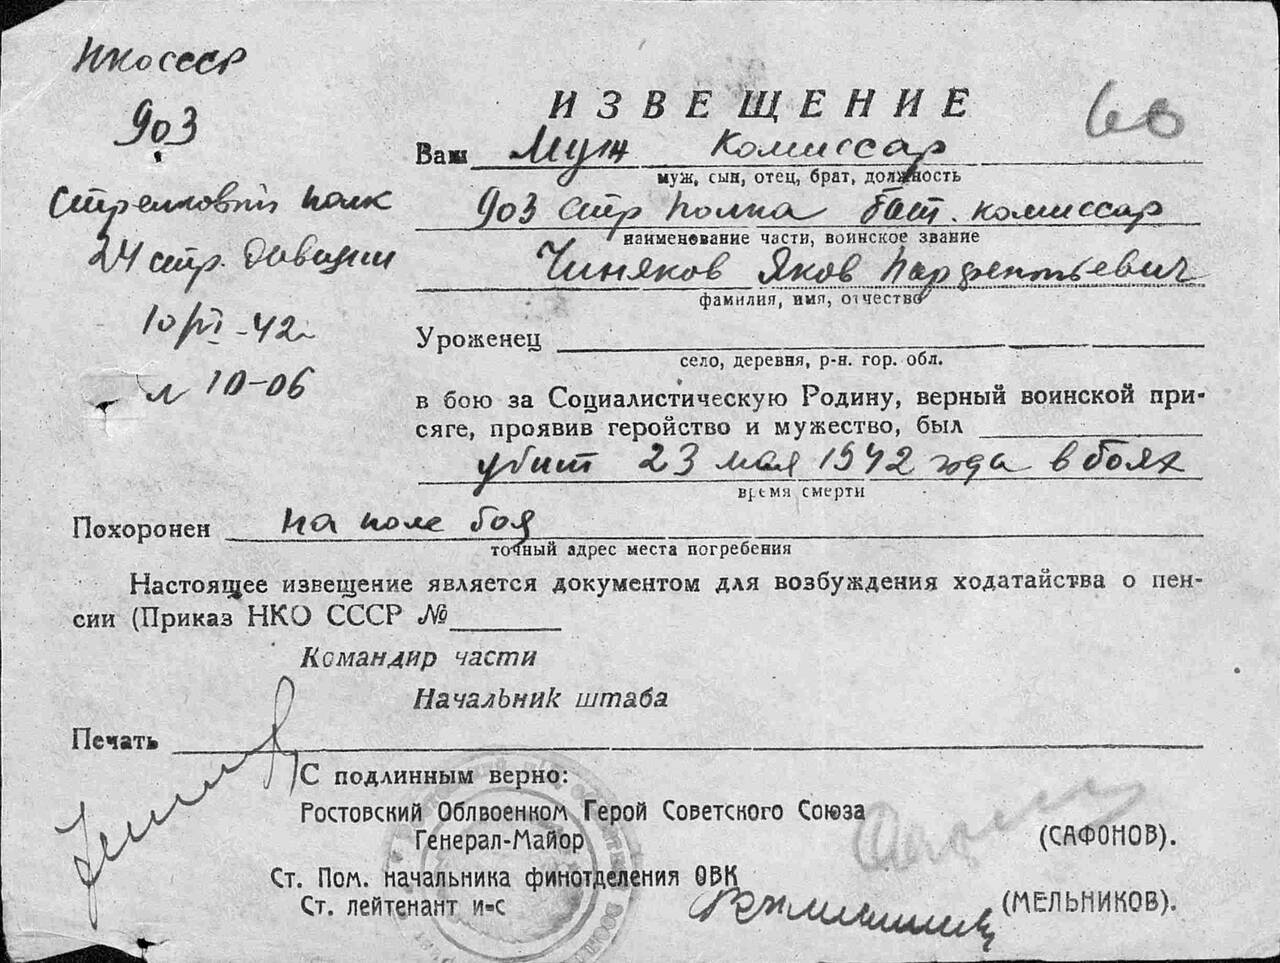 НКО СССР
903
Стрелковый полк
24 стр. дивизии
10/VI-42г
№ 10-06
60
ИЗВЕЩЕНИЕ
Ваш муж комиссар
муж, сын, отец, брат, должность
903 стр полка бат. комиссар
наименование части, воинское звание
Чиняков Яков Парфентьевич
фамилия, имя, отчество
Уроженец
село, деревня, р-н. гор. обл.
в бою за Социалистическую Родину, верный воинской при-
сяге, проявив геройство и мужество, был
убит 23 мая 1942 года в боях
время смерти
Похоронен на поле боя
точный адрес места погребения
Настоящее извещение является документом для возбуждения ходатайства о пен-
сии (Приказ НКО СССР №
Командир части
Начальник штаба
Печать
С подлинным верно:
Ростовский Облвоенком Герой Советского Союза
Генерал-Майор (САФОНОВ).
Ст. Пом. начальника финотделения ОВК
Ст. лейтенант и-с (МЕЛЬНИКОВ).